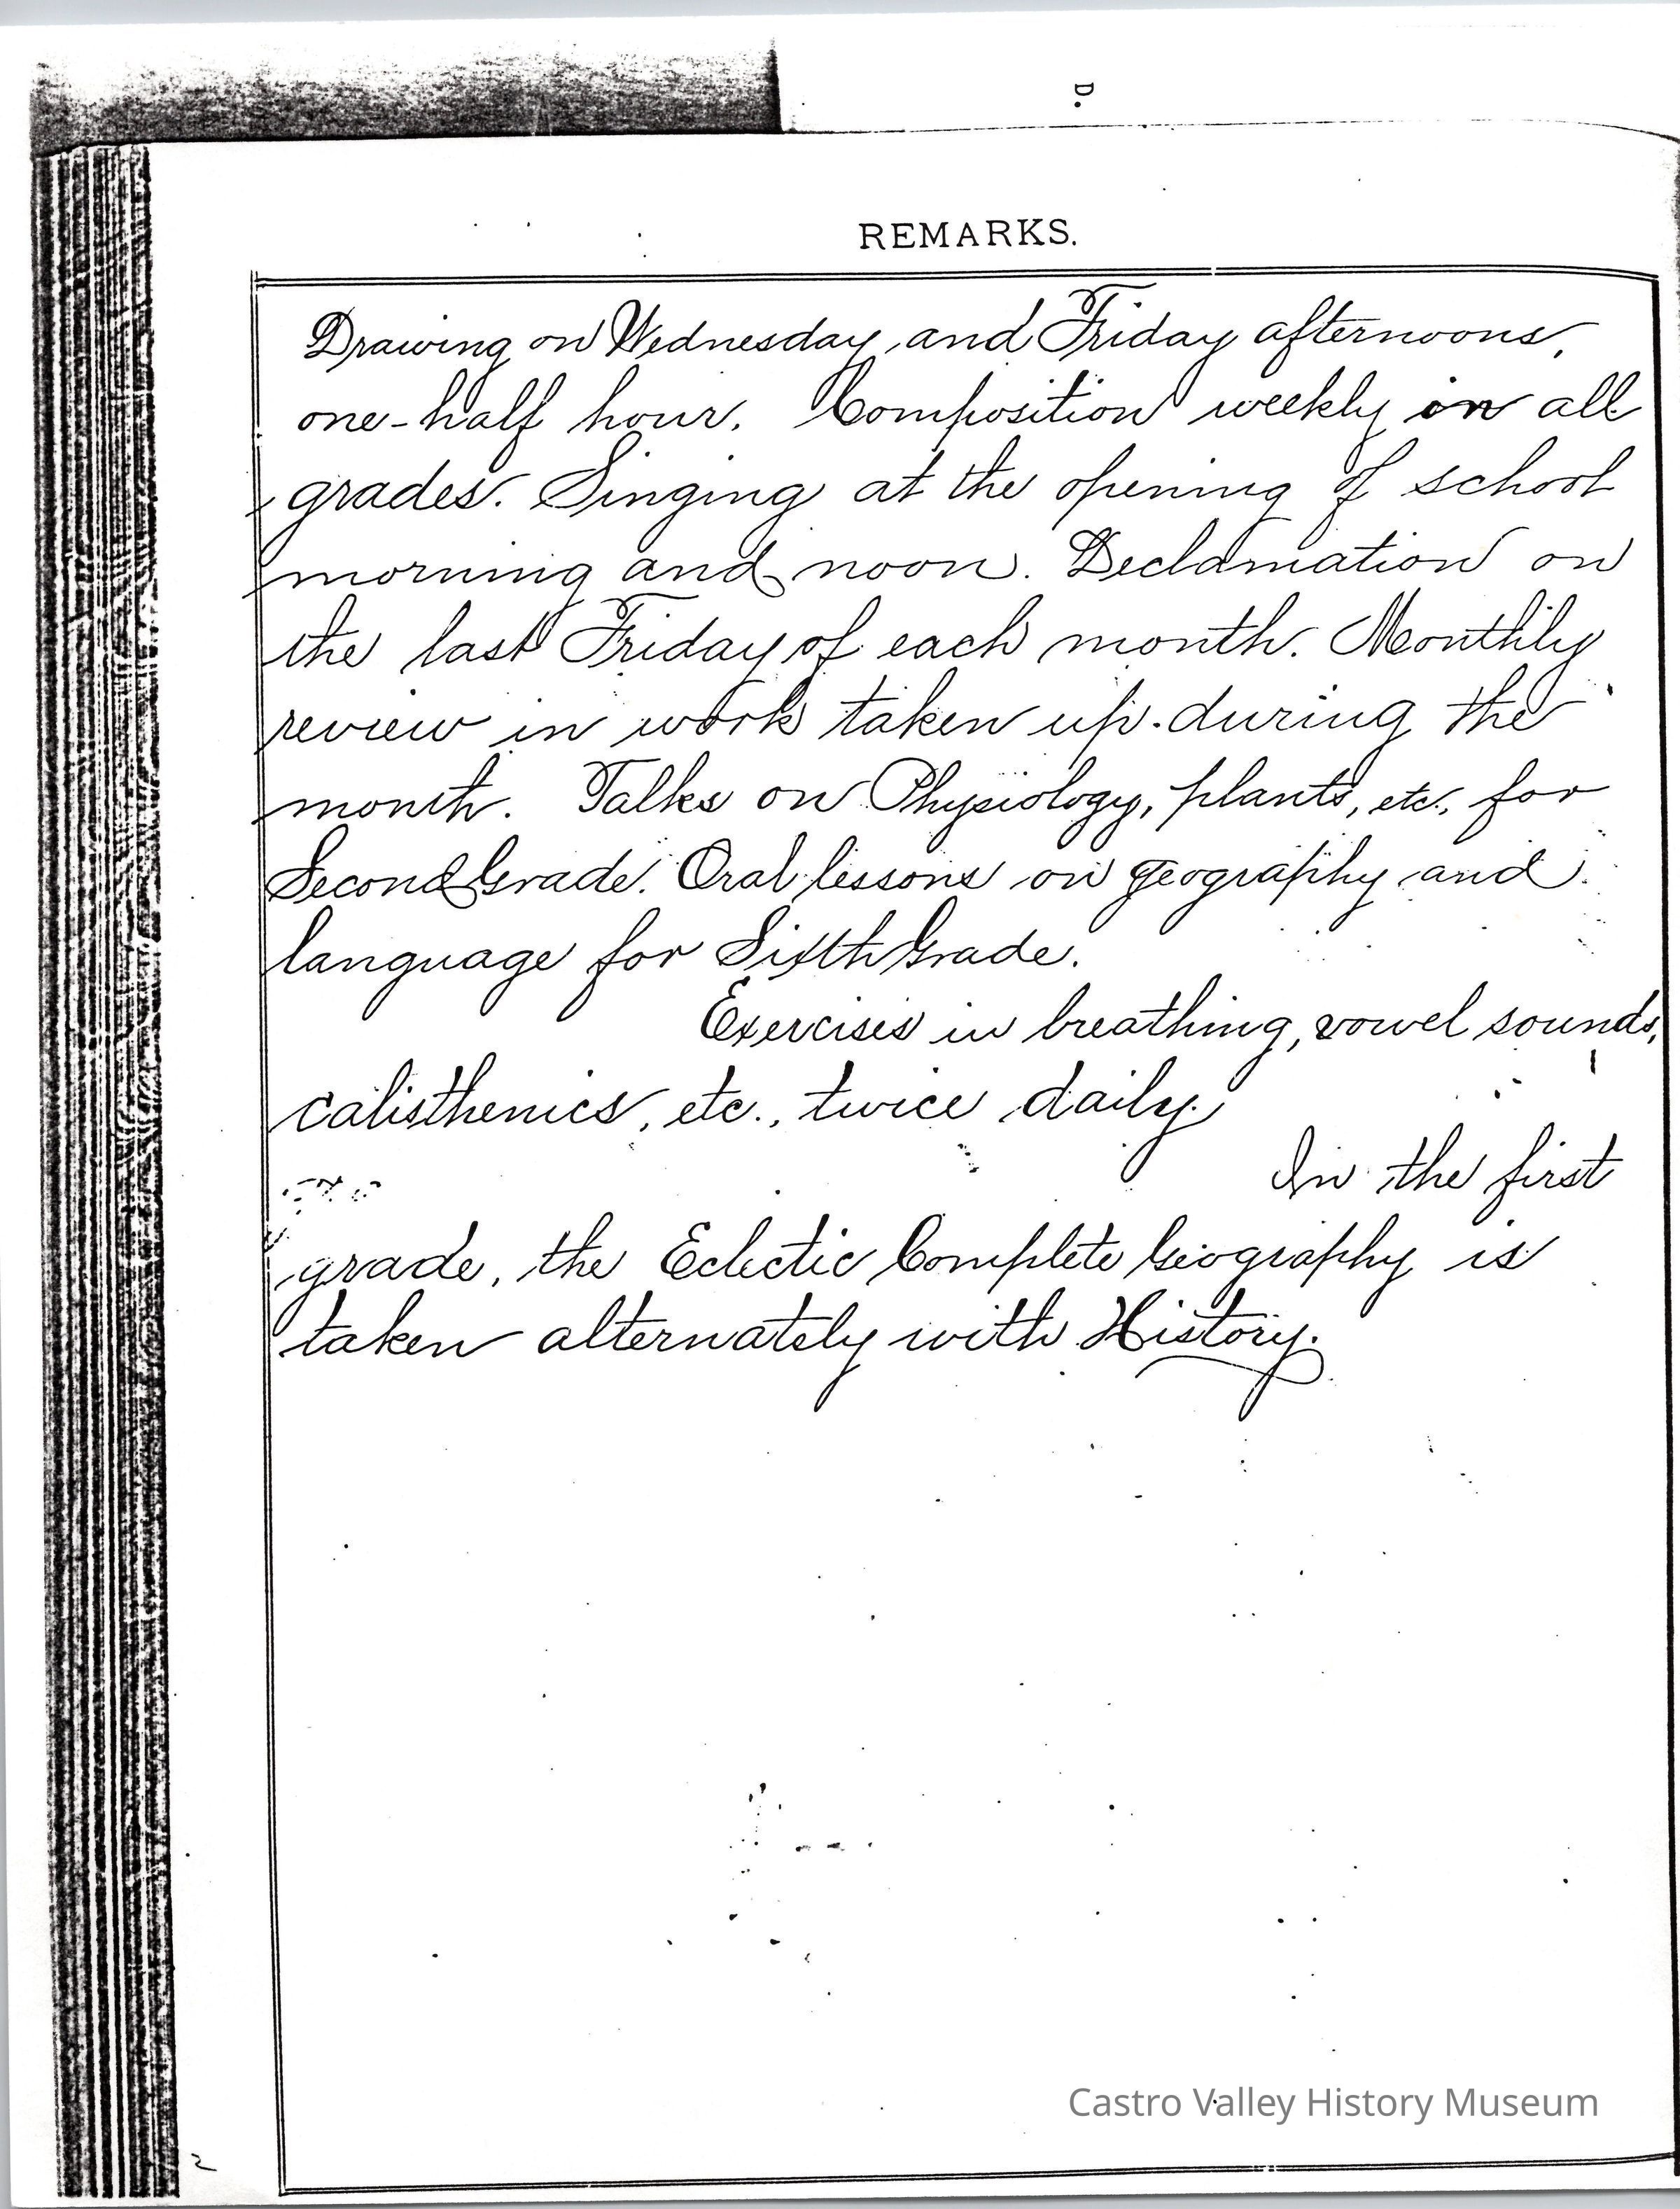 D.
REMARKS.
Drawing on Wednesday and Friday afternoons,
one-half hour. Composition weekly in all
grades. Singing at the opening of school
morning and noon. Declamation on
the last Friday of each month. Monthly
review in work taken up during the
month. Talks on Physiology, plants, etc., for
Second Grade. Oral lessons on geography and
language for Sixth Grade.
Exercises in breathing, vowel sounds,
calisthenics, etc., twice daily.
In the first
grade, the Eclectic Complete Geography is
taken alternately with History.
Castro Valley History Museum